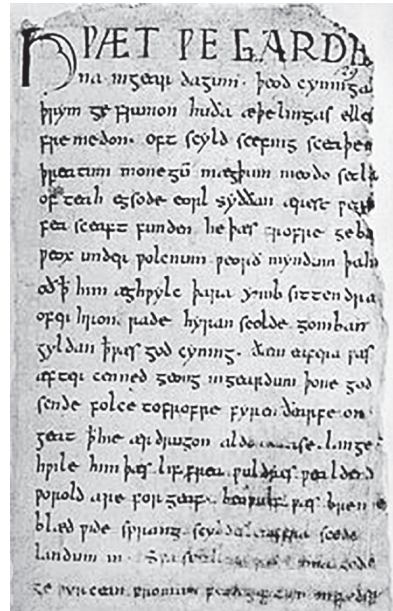 HǷÆT ǷE GARDE
na ingear dagum. þeod cyninga
þrym ge frunon huða æþelingas elle
fremedon. oft scyld scefing sceaþen
þreatum monegū mægþum meodo setla
of teah egsode eorl syððan ærest ƿear
fea sceaft funden he þæs frofre geba
ƿeox under ƿolcnum ƿeorð myndum þah
oð ꝥ him æghƿylc þara ymb sittendra
ofer hron rade hyran scolde gomban
gyldan ꝥ ƿæs god cyning. ðæm eafera ƿæs
æfter cenned geong ingeardum þone god
sende folce tofrofre fyren ðearfe on
geat ꝥ hie ær drugon lange
hƿile him þæs lif frea ƿuldres ƿealdend
ƿorold are for geaf. beoƿulf ƿæs breme
blæd ƿide sprang scyldes eafera scede
landum in. gode
ge ƿyrcean fromum